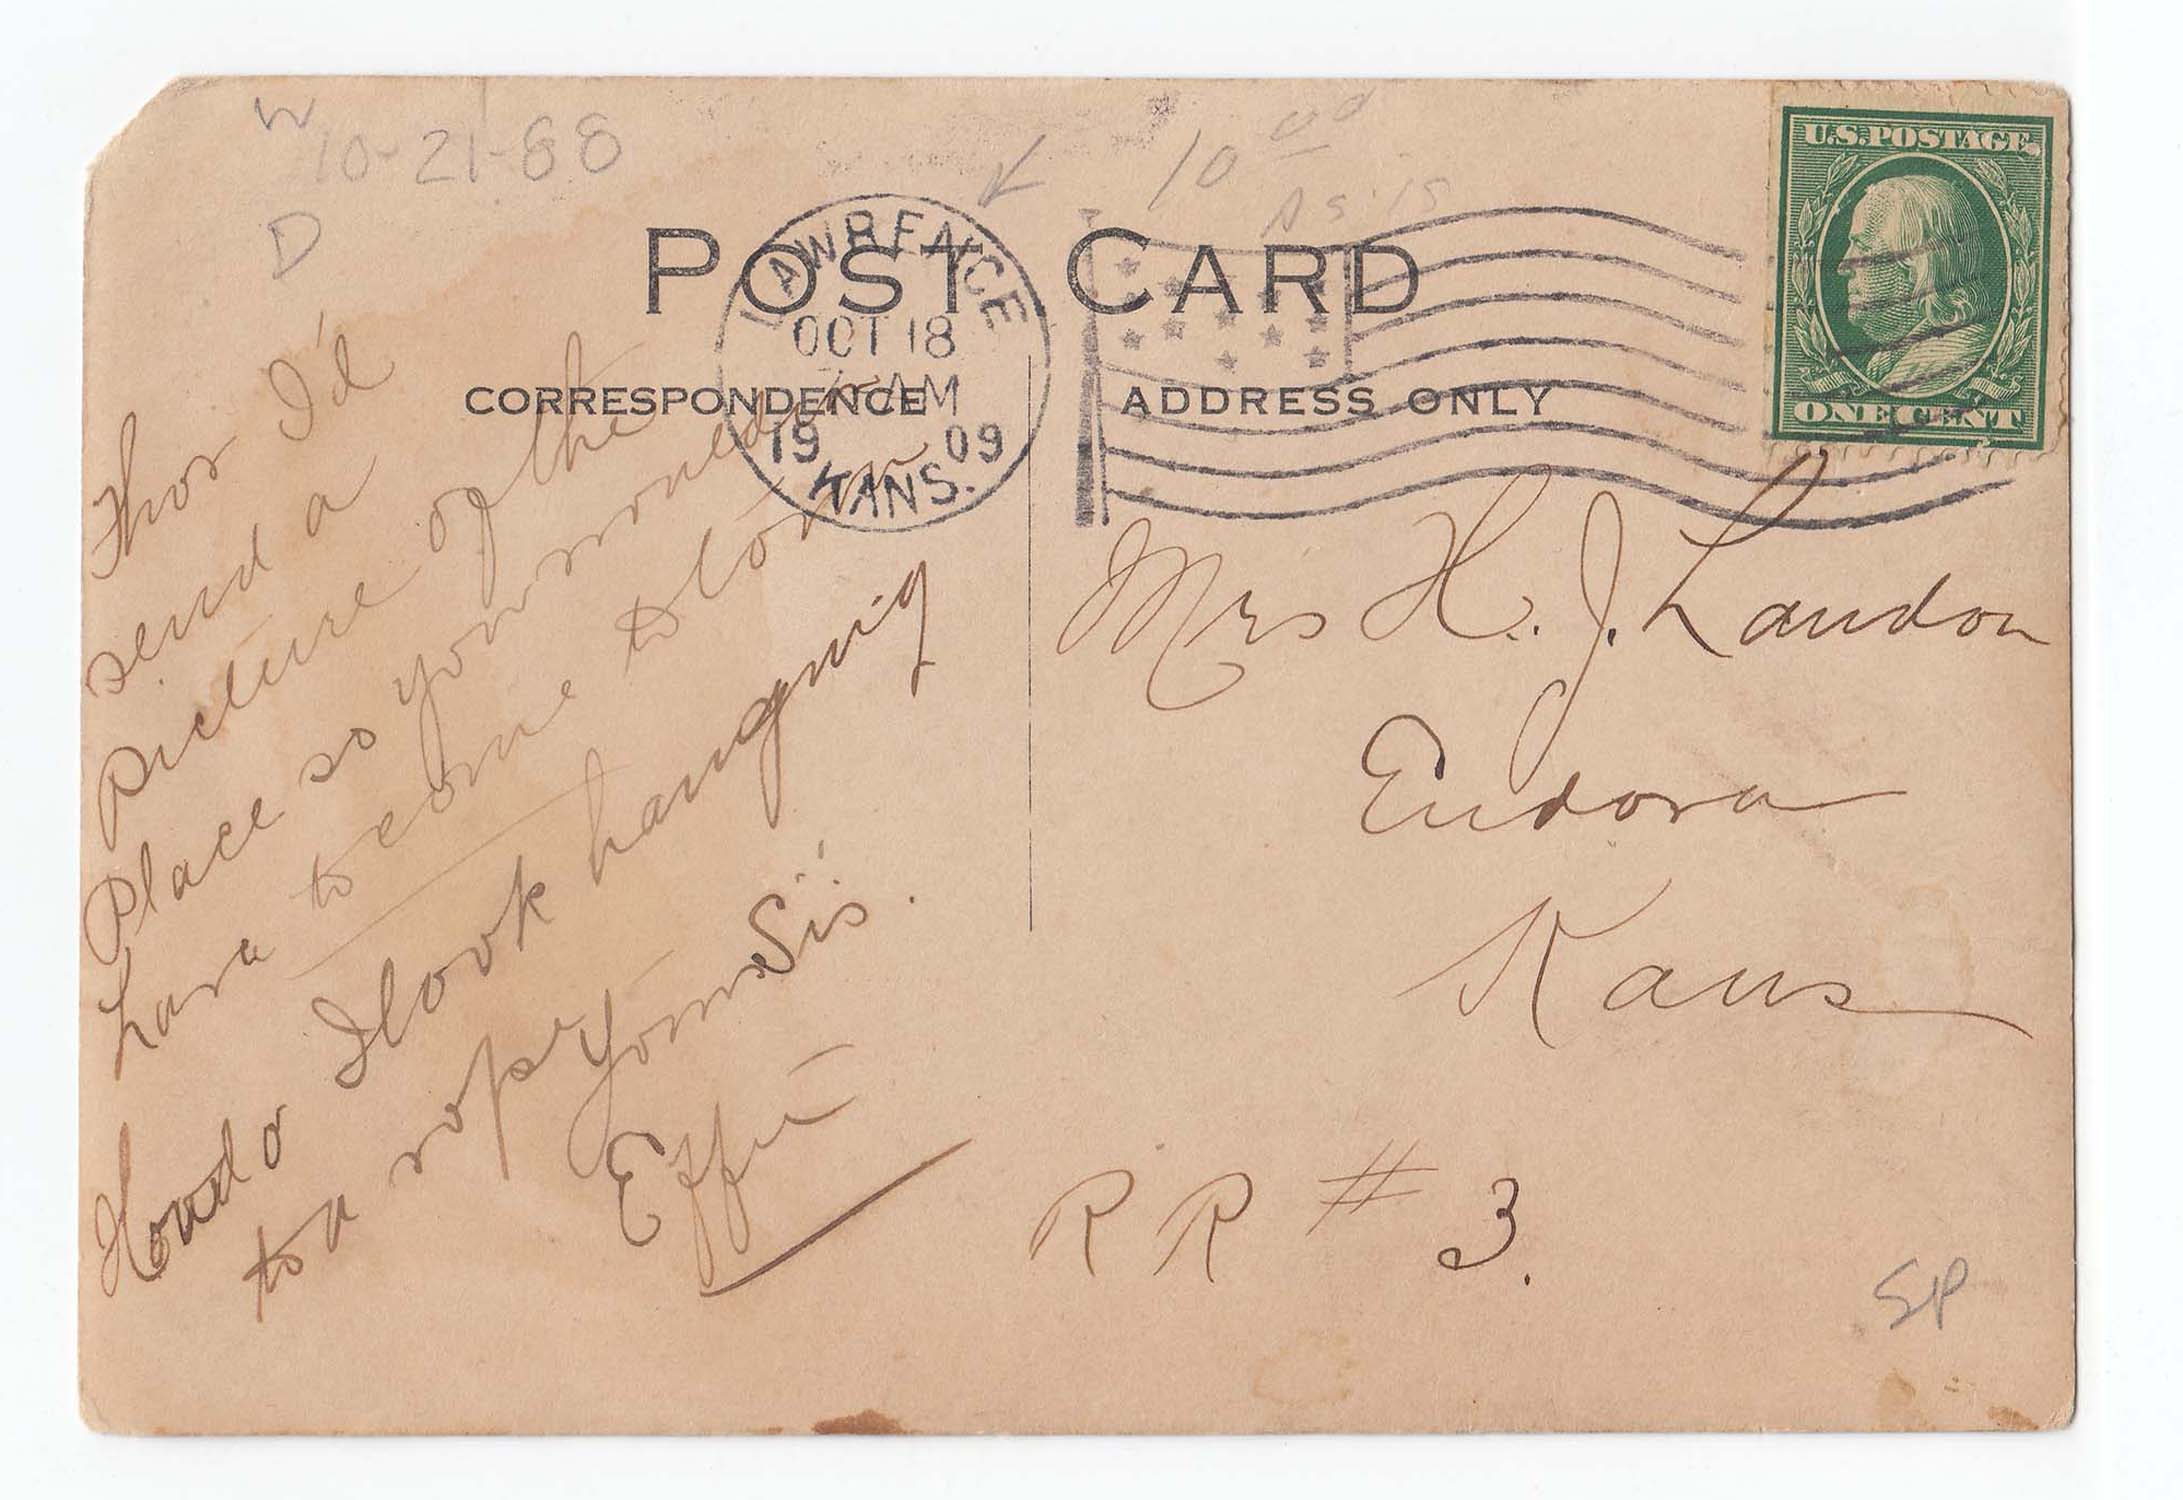 W
10-21-88
D
10 00
As is
POST CARD
LAWRENCE
OCT 18
AM
1909
KANS.
CORRESPONDENCE
ADDRESS ONLY
U.S. POSTAGE
ONE CENT
Thot I'd
send a
Picture of the
Place so you
to come to town
I look hanging
to a rope
Your Sis.
Effie
Mrs H. J. Landon
Eudora
Kans
RR # 3.
SP